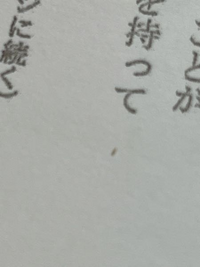 ことが
を持って
ジに続く）